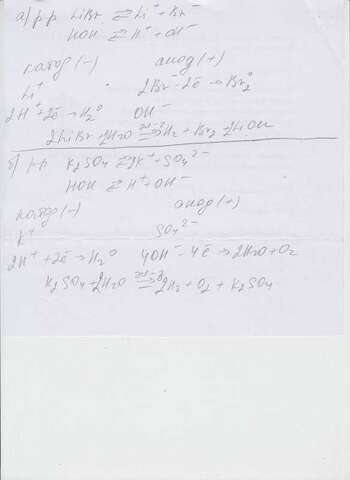 а) р-р LiBr ⇄ Li⁺ + Br⁻
HOH ⇄ H⁺ + OH⁻
катод (-) анод (+)
Li⁺ 2Br⁻ - 2ē → Br₂⁰
2H⁺ + 2ē → H₂⁰ OH⁻
2LiBr + 2H₂O эл-з⟶ H₂ + Br₂ + 2LiOH
б) р-р K₂SO₄ ⇄ 2K⁺ + SO₄²⁻
HOH ⇄ H⁺ + OH⁻
катод (-) анод (+)
K⁺ SO₄²⁻
2H⁺ + 2ē → H₂⁰ 4OH⁻ - 4ē → 2H₂O + O₂
K₂SO₄ + 2H₂O эл-з⟶ 2H₂ + O₂ + K₂SO₄